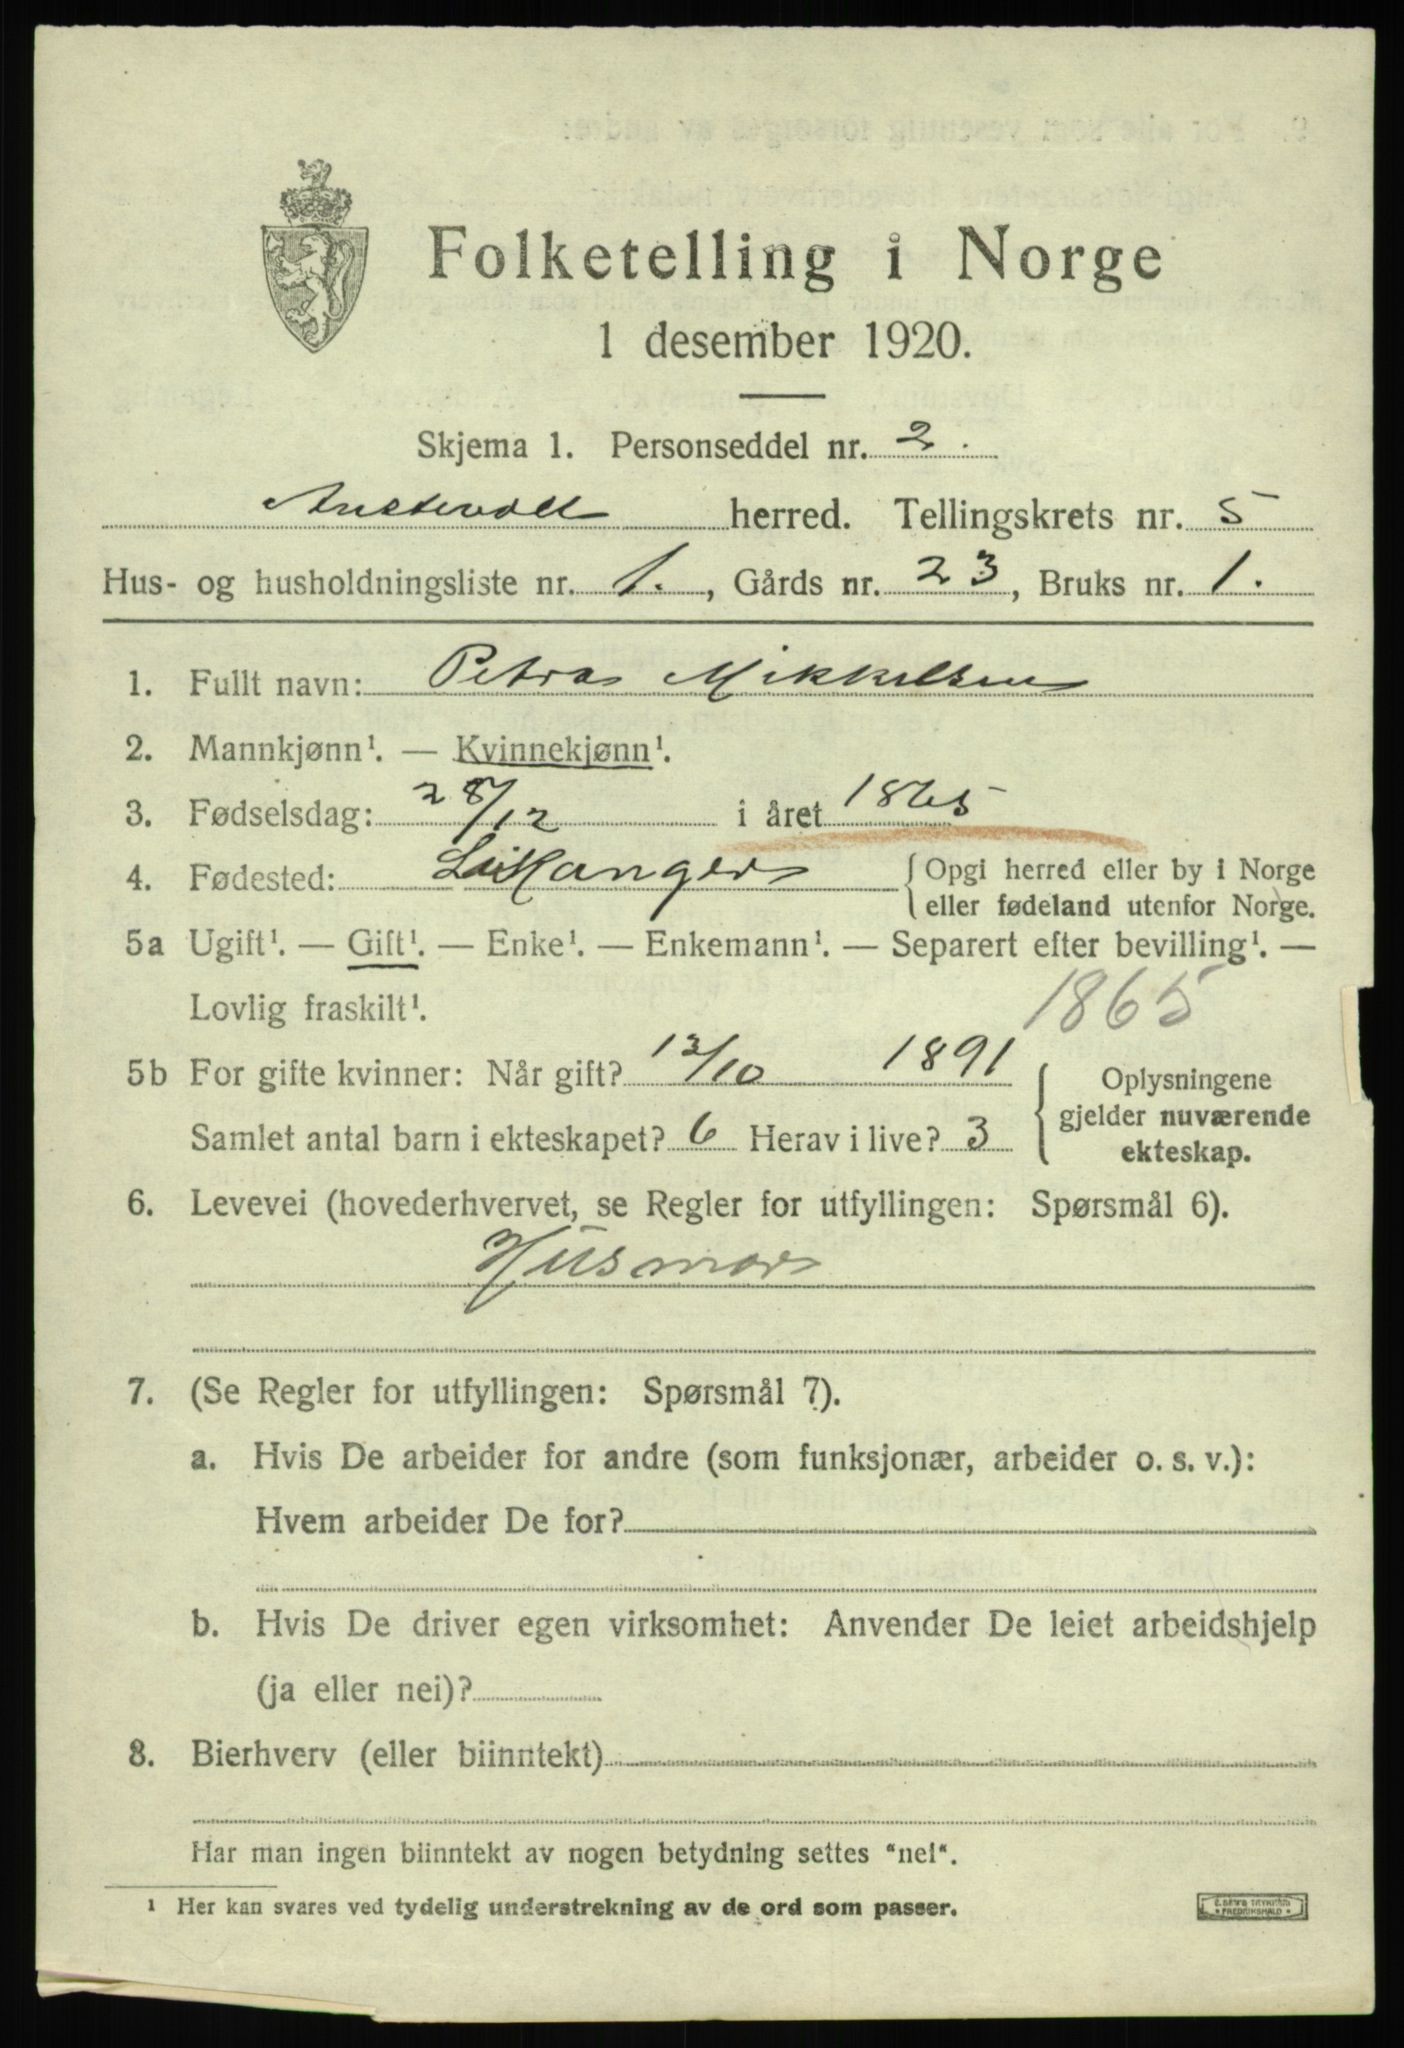 Folketelling i Norge
1 desember 1920.
Skjema 1. Personseddel nr. 2.
Austevoll herred. Tellingskrets nr. 5
Hus- og husholdningsliste nr. 1., Gårds nr. 23, Bruks nr. 1.
1. Fullt navn: Petra Mikkelsen
2. Mannkjønn¹. — Kvinnekjønn¹.
3. Fødselsdag: 28/12 i året 1865
4. Fødested: Leikanger { Opgi herred eller by i Norge
eller fødeland utenfor Norge.
5a Ugift¹. — Gift¹. — Enke¹. — Enkemann¹. — Separert efter bevilling¹. —
Lovlig fraskilt¹. 1865
5b For gifte kvinner: Når gift? 13/10 1891
Samlet antal barn i ekteskapet? 6 Herav i live? 3
{ Oplysningene
gjelder nuværende
ekteskap.
6. Levevei (hovederhvervet, se Regler for utfyllingen: Spørsmål 6).
Husmor
7. (Se Regler for utfyllingen: Spørsmål 7).
a. Hvis De arbeider for andre (som funksjonær, arbeider o. s. v.):
Hvem arbeider De for?
b. Hvis De driver egen virksomhet: Anvender De leiet arbeidshjelp
(ja eller nei)?
8. Bierhverv (eller biinntekt)
Har man ingen biinntekt av nogen betydning settes "nei".
¹ Her kan svares ved tydelig understrekning av de ord som passer.
FREDRIKSHALD